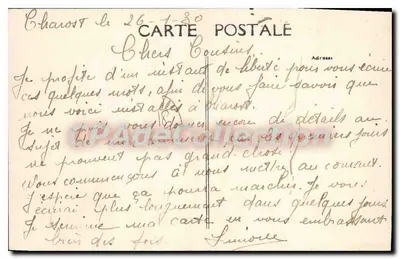 Charost le 26-1-30
CARTE POSTALE
Chers Cousins,
Adresse
Je profite d'un instant de liberté pour vous écrire
ces quelques mots, afin de vous faire savoir que
nous voici installés à Charost.
Je ne puis vous donner encore de détails au
sujet de les premiers jours
ne prouvent pas grand chose.
Nous commençons à nous mettre au courant.
J'espère que ça pourra marcher. Je vous
écrirai plus longuement dans quelques jours
Je termine ma carte en vous embrassant
bien des fois. Simone